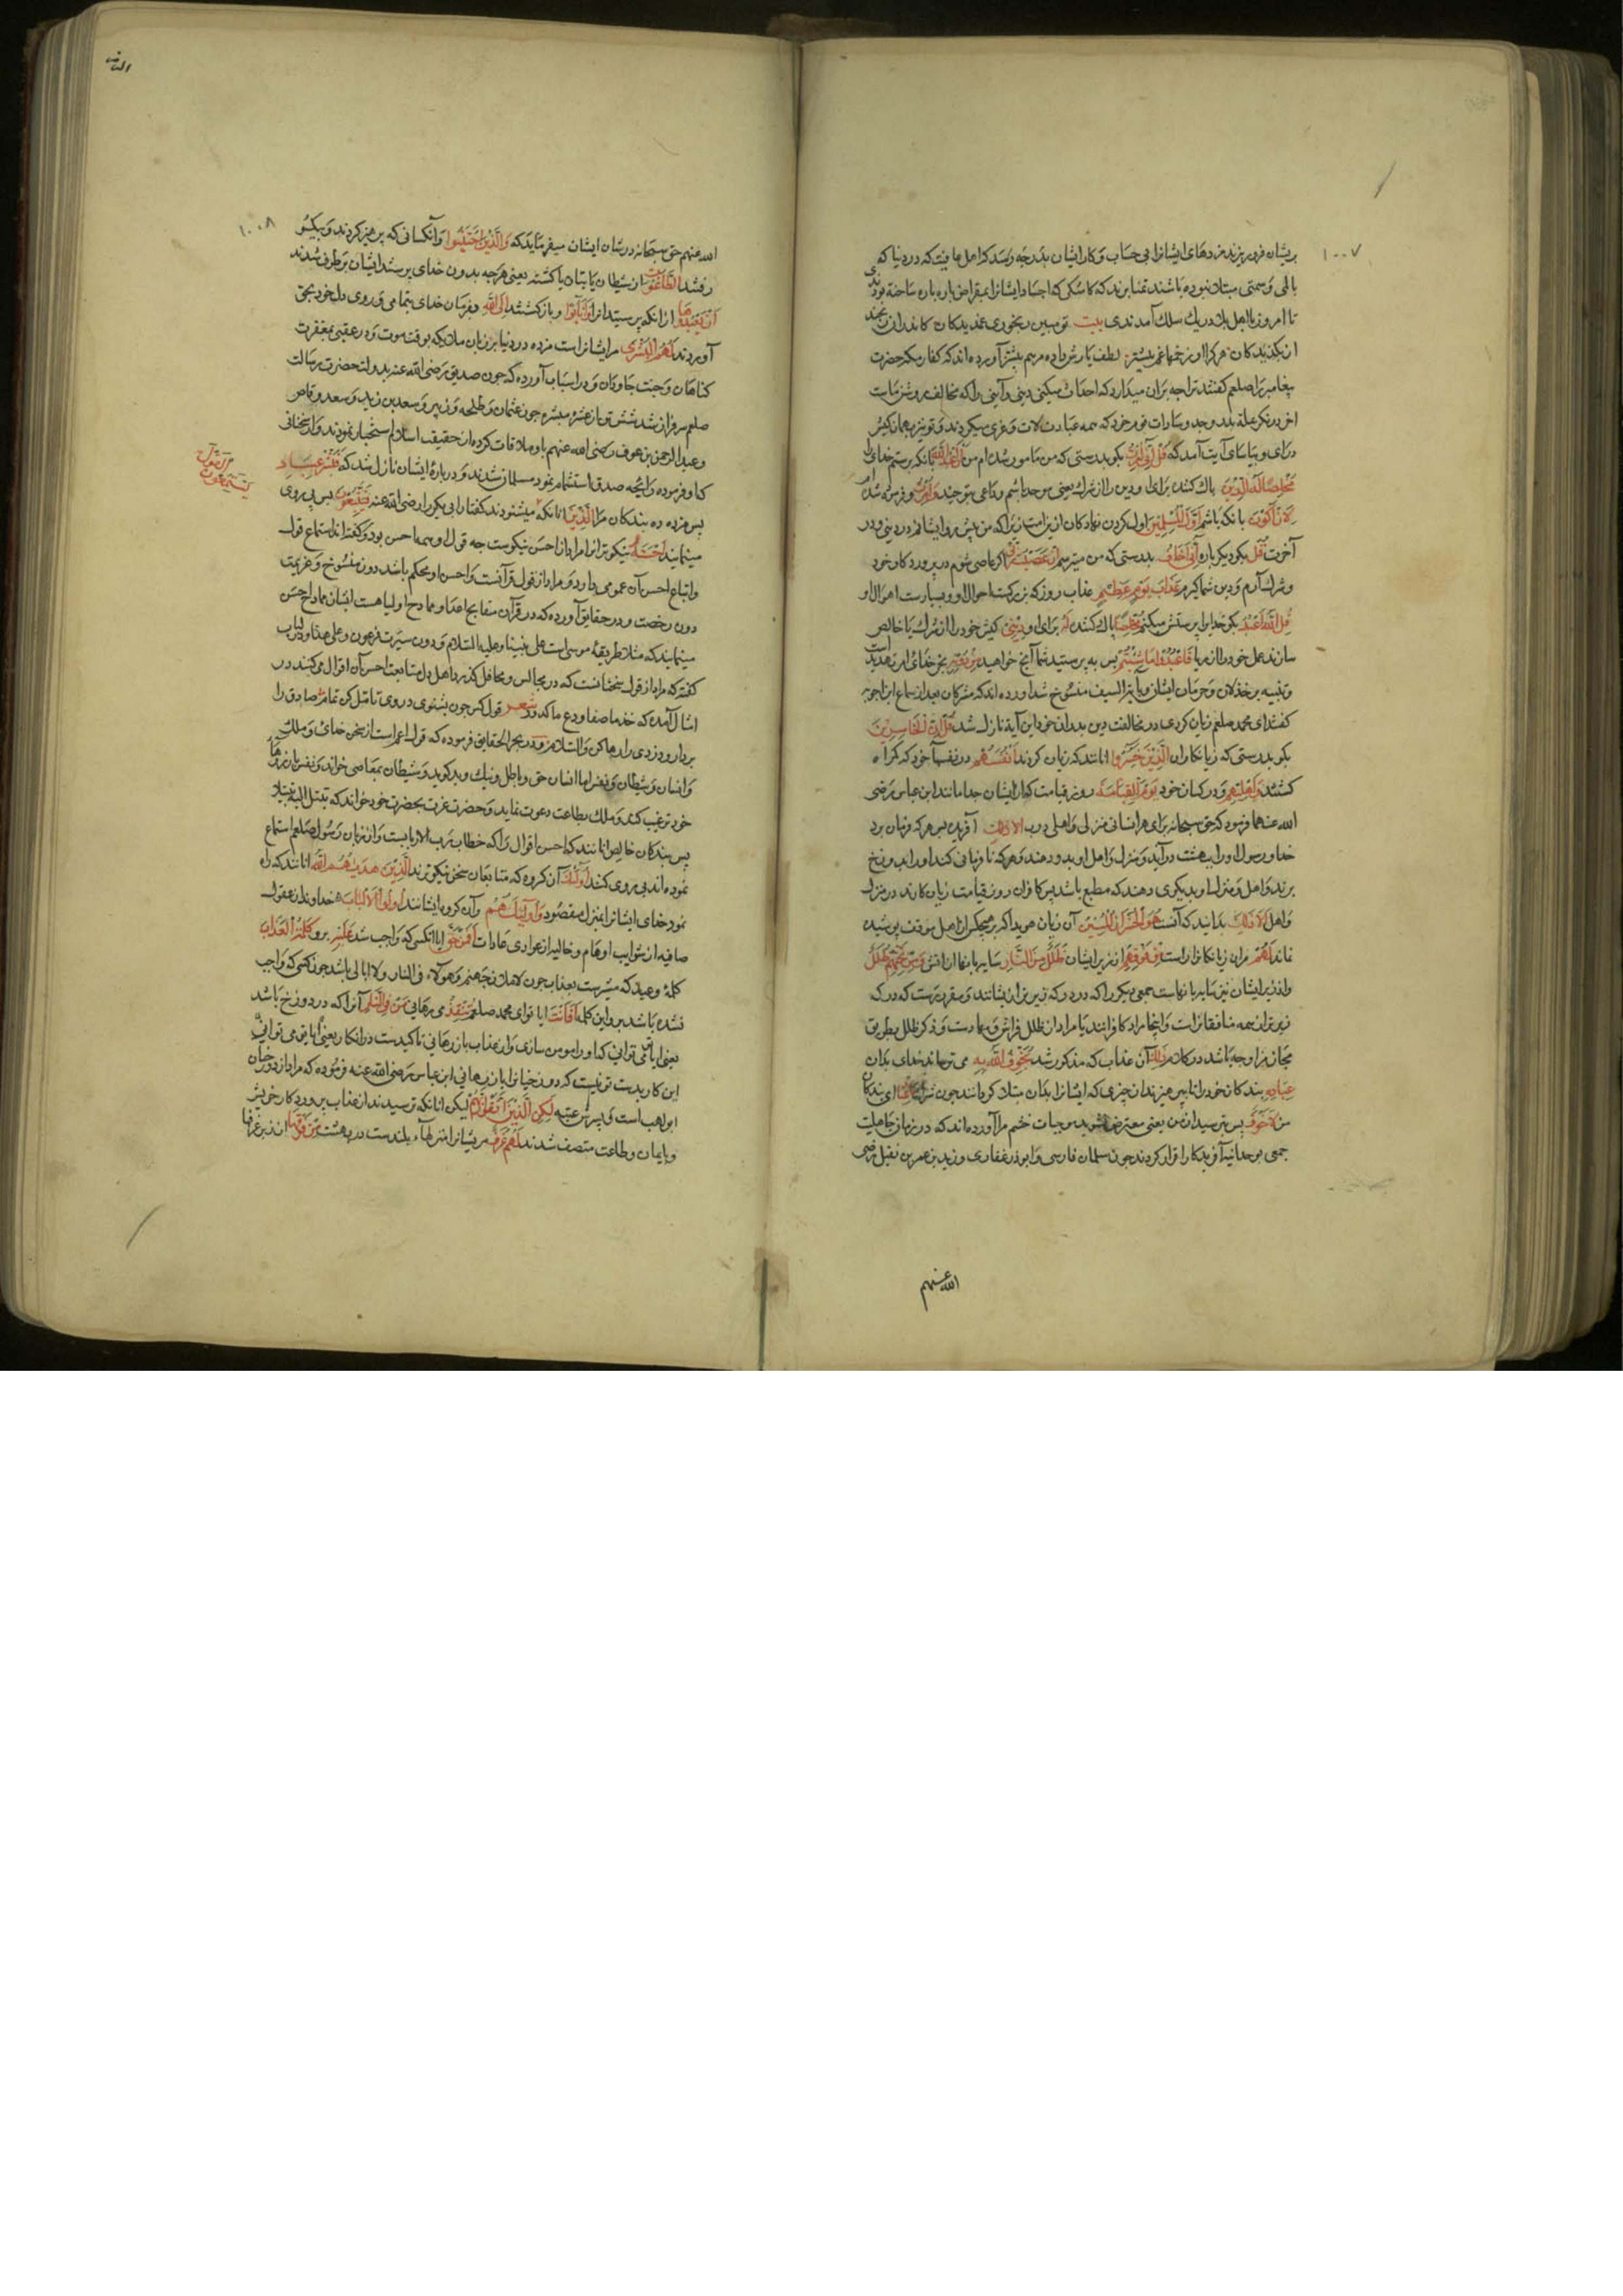 ۱۰۰۷
بریشان فرو ریزند مزدهای ایشانرا بی حساب و کار ایشان بدرجه رسد که اهل عافیت که در دنیا که
بالمی و سمتی مبتلا نبوده باشند تمنا برند که کاشکی که اجساد ایشانرا بمقراض پاره پاره ساخته بودندی
تا امروز با اهل بلا در یک سلک آمدندی بیت تو مبین رنجوری غمدیدکان کاندران رنجند
از بکذیدکان هر کرا از زخمها غم بیشتر لطف یارش داده مرهم بیشتر آورده اند که کفار مکه حضرت
پیغامبر را صلعم کفتند ترا چه بران میدارد که احداث میکنی دینی و آیینی را که مخالف روش ماست
اخر در نکر بملة پدر و جد و سادات قوم خود که همه عبادت لات و عزی میکردند و تو نیز همان کیش
درای و بیاسای آیت آمد که قُل اِنّی اُمِرتُ بکو بدرستی که من مامور شده ام من اَن اَعبُدَ اللهَ بانکه پرستم خدای را
مُخلِصًا لَهُ الدّینَ پاک کننده برای او دین را از شرک یعنی موحد باشم و داعی بتوحید وَاُمِرتُ و فرموده شده ام
لِاَن اَکونَ بانکه باشم اَوَّلَ المُسلِمینَ اول کردن نهادکان ازین امت زیرا که من پیش رو ایشانم در دینی و در
آخرت قُل بکو دیکر باره اِنّی اَخافُ بدرستی که من میترسم اِن عَصَیتُ رَبّی اکر عاصی شوم در پروردکار خود
و شرک آرم و دین شما کیرم عَذابَ یَومٍ عَظیمٍ عذاب روز که بزرکست احوال او و بسیارست اهوال او
قُلِ اللهَ اَعبُدُ بکو خدایرا پرستش میکنم مُخلِصًا پاک کننده لَهُ برای او دینی کیش خود را از شرک یا خالص
سازنده عمل خود را از ریا فَاعبُدوا ما شِئتُم پس بپرستید شما آنچ خواهید مِن دونِه بجز خدای امر تهدید است
و تنبیه بر خذلان و حرمان ایشان و بآیة السیف منسوخ شد آورده اند که مشرکان بعد از سماع این اجوبه
کفتند ای محمد صلعم زیان کردی در مخالفت دین پدران خود این آیة نازل شد قُل اِنَّ الخاسِرینَ
بکو بدرستی که زیانکاران الَّذینَ خَسِروا انانند که زیان کردند اَنفُسَهُم در نفسها خود که کمراه
کشتند وَاَهلیهِم و در کسان خود یَومَ القِیامَةِ روز قیامت که از ایشان جدا مانند ابن عباس رضی
الله عنهما فرمود که حق سبحانه برای هر انسانی منزلی و اهلی در بهشت آفریده پس هر که فرمان برد
خدا و رسول را و را بهشت درآید و منزل و اهل او بدو دهند و هر که نافرمانی کند او را بدوزخ
برند و اهل و منزل او بدیکری دهند که مطیع باشد پس کافران روز قیامت زیان کارند در منزل
و اهل اَلا ذلِکَ بدانید که آنست هُوَ الخُسرانُ المُبینُ آن زیان هویدا که بر هیچکس از اهل موقف پوشیده
نماند لَهُم مران زیانکارانراست مِن فَوقِهِم از زبر ایشان ظُلَلٌ مِنَ النّارِ سایه بانها از اتش وَمِن تَحتِهِم ظُلَلٌ
و از زیر ایشان نیز سایه بانهاست جمعی دیکر را که در درکه زیرتر از ایشانند و مقررست که درکه
زیرتر از همه منافقانراست و اینجا مراد کافرانند یا مراد از ظلل فراش و مهادست و ذکر ظلل بطریق
مجاز مزاوجه باشد در کلام ذلِکَ آن عذاب که مذکور شد یُخَوِّفُ اللهُ بِهِ می ترساند خدای بدان
عِبادَهُ بندکان خود را تا بپرهیزند از چیزی که ایشانرا بدان مبتلا کرداند چون شرک یا عِبادِ ای بندکان
من فَاتَّقونِ پس بترسید از من یعنی معترض مشوید موجبات خشم مرا آورده اند که در زمان جاهلیت
جمعی بوحدانیة آفریدکار اقرار کردند چون سلمان فارسی و ابوذر غفاری و زید بن عمر بن نفیل رضی
الله عنهم
۱۰۰۸
الله عنهم حق سبحانه در شان ایشان میفرماید که وَالَّذینَ اجتَنَبوا و آنکسانی که پرهیز کردند و بیکسو
رفتند الطّاغوتَ از شیطان یا بتان یا کهنه یعنی هرچه بدون خدای پرستند ایشان برطرف شدند
اَن یَعبُدوها از انکه پرستید انرا وَاَنابوا و باز کشتند اِلَی اللهِ بفرمان خدای بتمامی و روی دل خود بحق
آوردند لَهُمُ البُشری مر ایشانراست مژده در دنیا بر زبان ملائکه بوقت موت و در عقبی بمغفرت
کناهان و جنت جاودان و در اسباب آورده که چون صدیق رضی الله عنه بدولت حضرت رسالت
صلعم سرفراز شد شش تن از عشره مبشره چون عثمان و طلحه و زبیر و سعد بن زید و سعد وقاص
و عبد الرحمن بن عوف رضی الله عنهم با وی ملاقات کرده از حقیقت اسلام استخبار نمودند و از سخنانی
که او فرموده رایحه صدق استشمام نموده مسلمان شدند و درباره ایشان نازل شد که فَبَشِّر عِبادِ
پس مژده ده بندکان مرا الَّذینَ انانکه میشنوند کفتار ابی بکر را رضی الله عنه فَیَتَّبِعونَ پس پی روی
یَستَمِعونَ القَولَ
مینمایند اَحسَنَهُ نیکوترانرا مراد از احسن نیکوست چه قول او همه احسن بود و کفته اند استماع قول
و اتباع احسن آن عمومی دارد و مراد از قول قرآنست و احسن او محکم باشد دون منسوخ و عزیمت
دون رخصت و در حقایق آورده که در قرآن مقابح اعدا و ممادح اولیا هست ایشان ممادح احسن
مینمایند که مثلا طریقهٔ موسی است علی نبینا و علیه السلام دون سیرت فرعون و علی هذا و در لباب
کفته که مراد از قول سخنانست که در مجالس و محافل کذرد اهل دل متابعت احسن آن اقوال می کنند در
امثال آمده که خذ ما صفا و دع ما کدر شعر قول کس چون بشنوی در وی تامل کن تمام صاف را
بردار و دردی را رها کن والسلام و در بحر الحقایق فرموده که قول اعم است از سخن خدای و ملک
و انسان و شیطان و نفس اما انسان حق و باطل و نیک و بد کوید و شیطان بمعاصی خواند و نفس بارزوها
خود ترغیب کند و ملک بطاعت دعوت نماید و حضرت عزت بحضرت خود خواند که تبتل الیه تبتیلا
پس بندکان خالص انانند که احسن اقوال را که خطاب رب الاربابست و از زبان رسول صلعم استماع
نموده اند پی روی کنند اُولئِکَ آن کروه که متابعان سخن نیکوترند الَّذینَ هَدیهُمُ اللهُ انانند که راه
نمود خدای ایشانرا بمنزل مقصود وَاُولئِکَ هُم وآن کروه ایشانند اُولوا الاَلبابِ خداوندان عقول
صافیه از شوایب اوهام و خالیه از عوادی عادات اَفَمَن حَقَّ ایا انکسی که واجب شد عَلَیهِ برو کَلِمَةُ العَذابِ
کلمهٔ وعید که میسرست بعذاب چون لاملان جهنم و هؤلاء فی النار ولا ابالی باشد چون کسی که واجب
نشده باشد برو این کلمه اَفَاَنتَ ایا تو ای محمد صلعم تُنقِذُ می رهانی مَن فِی النّارِ آنرا که در دوزخ باشد
یعنی ایا تو می توانی که او را مومن سازی و از عذاب باز رهانی تاکیدست در انکار یعنی ایا تو می توانی
این کار بدست تو نیست که دوزخیانرا باز رهانی ابن عباس رضی الله عنه فرموده که مراد از دوزخیان
ابو لهب است و پسرش عتبه لکِنِ الَّذینَ اتَّقَوا رَبَّهُم لیکن انانکه ترسیدند از عذاب پروردکار خویش
و بایمان و طاعت متصف شدند لَهُم غُرَفٌ مریشانرا منزلهاء بلندست در بهشت مِن فَوقِها از زبر غرفها